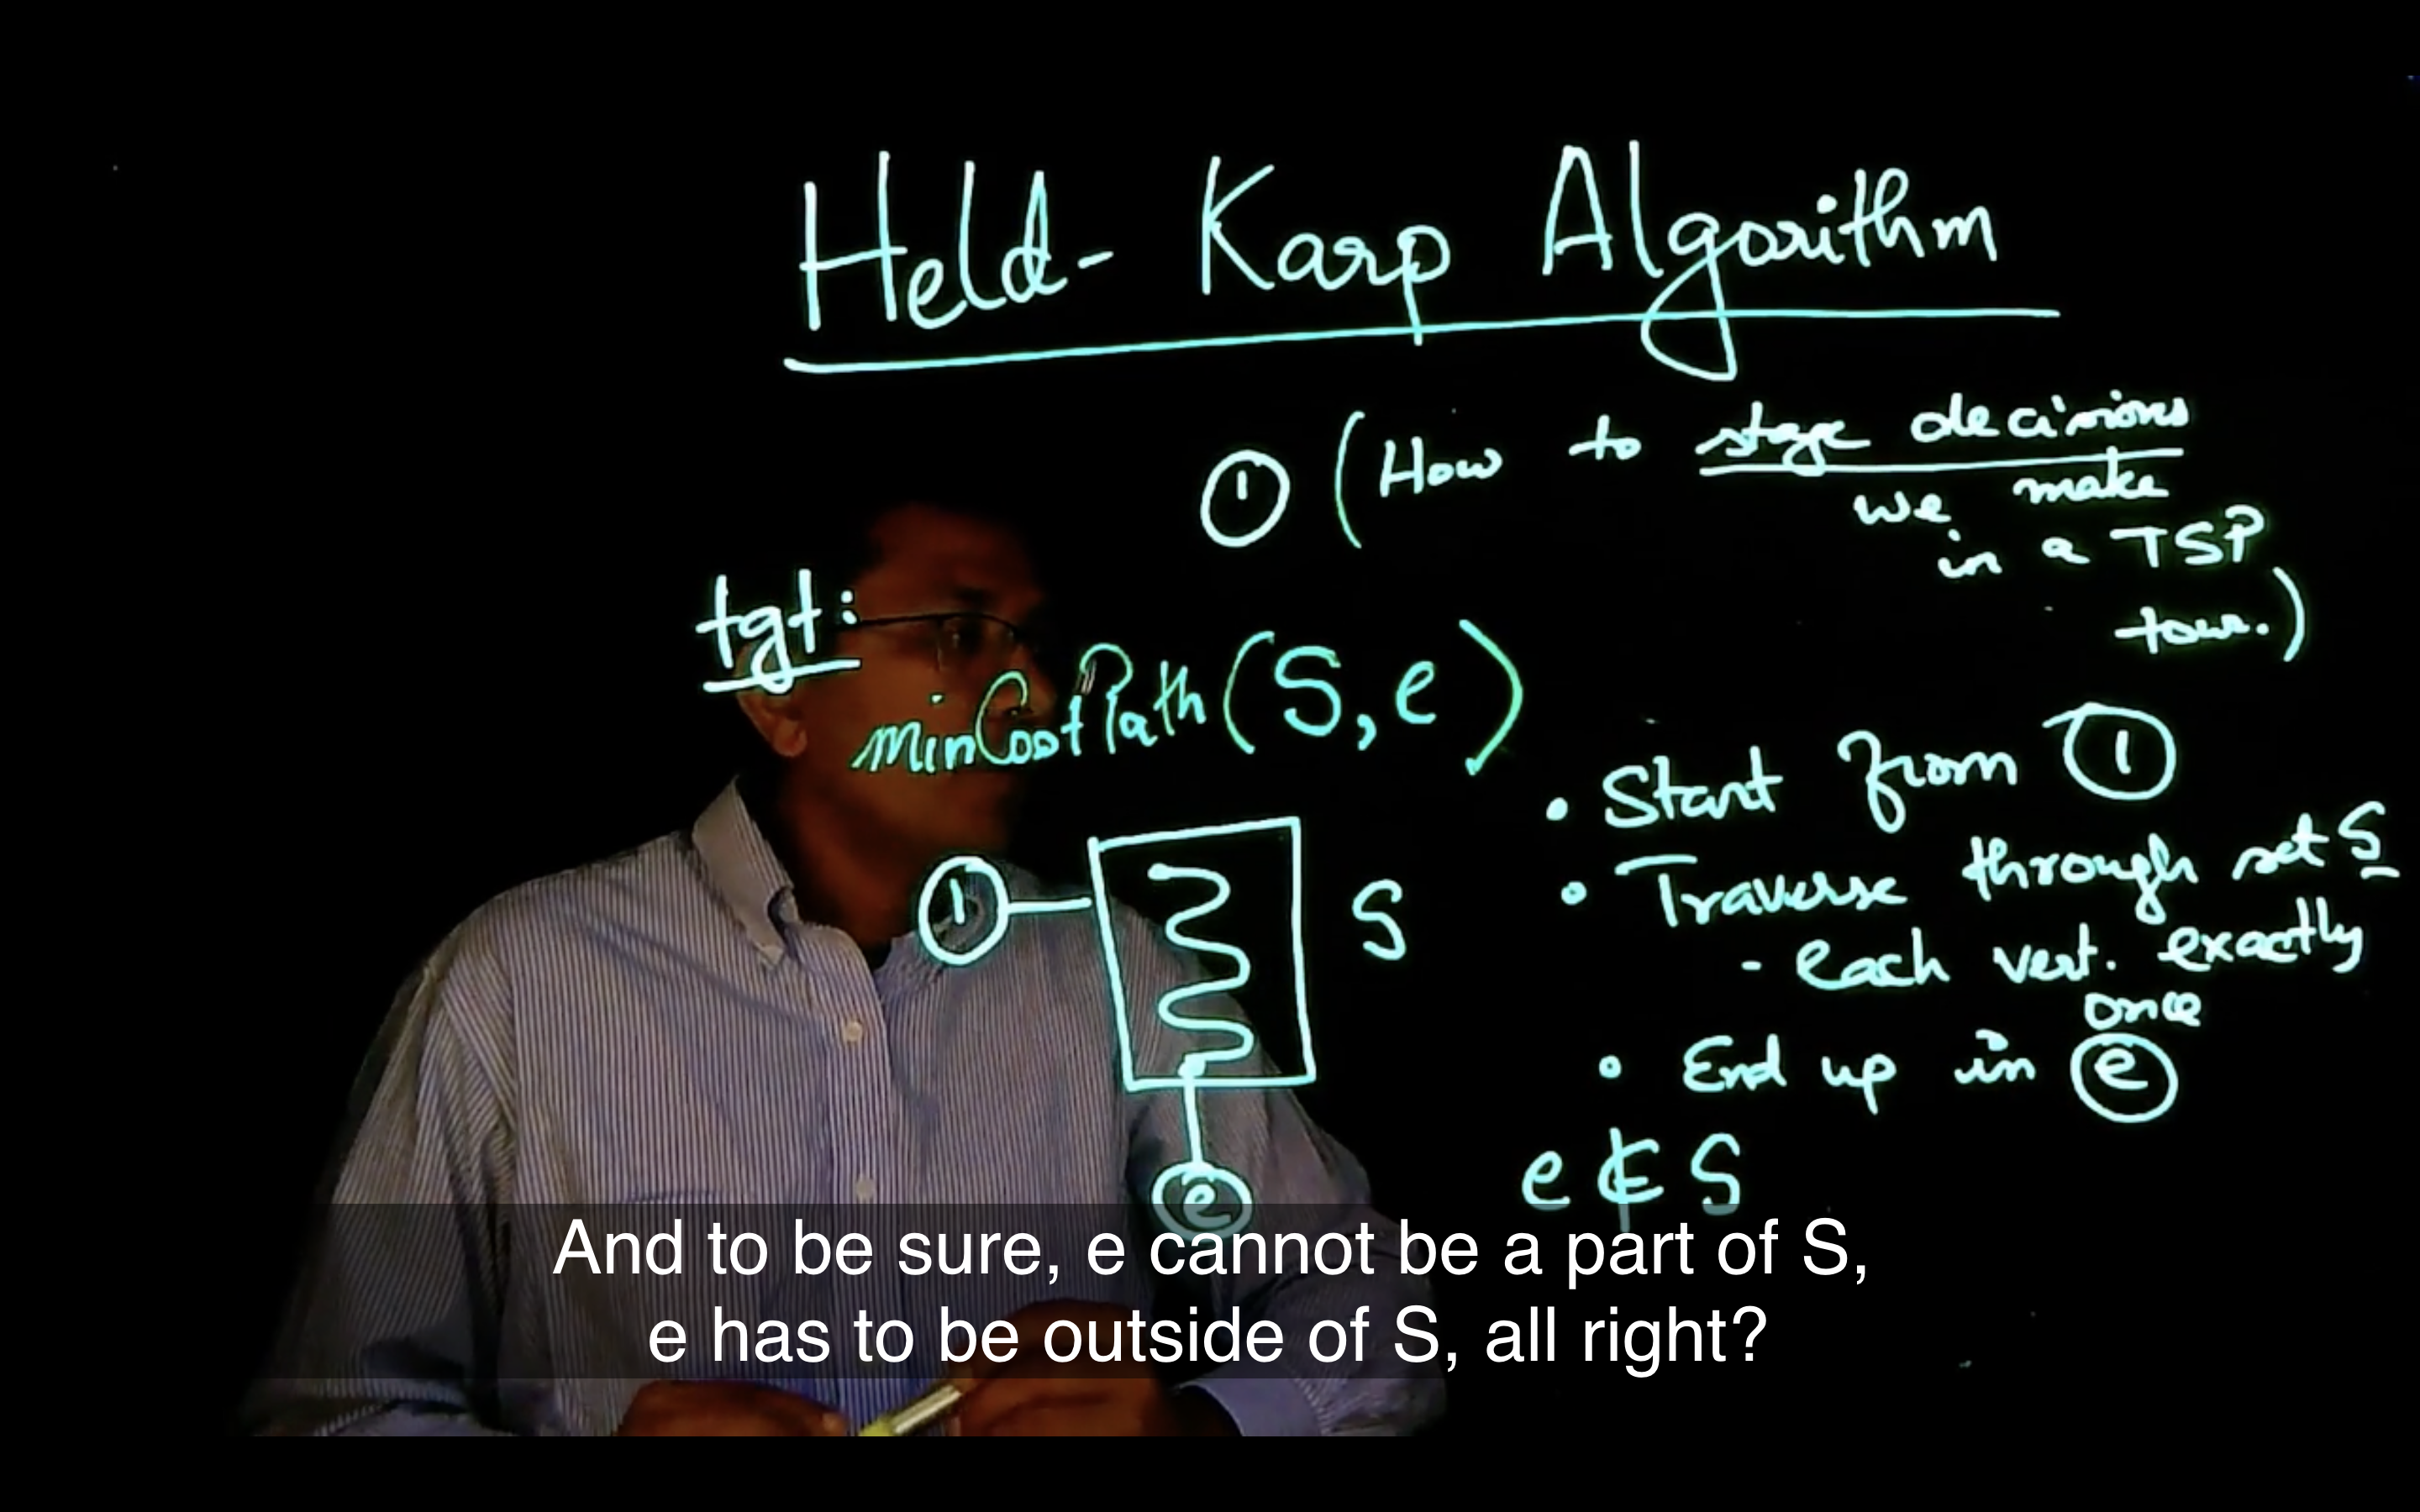 Held- Karp Algorithm
① (How to stage decisions
we make
in a TSP
tour.)
tgt:
minCostPath (S, e)
• Start from ①
• Traverse through set S
- each vert. exactly
once
• End up in ⓔ
① S
ⓔ
e ∉ S
And to be sure, e cannot be a part of S,
e has to be outside of S, all right?